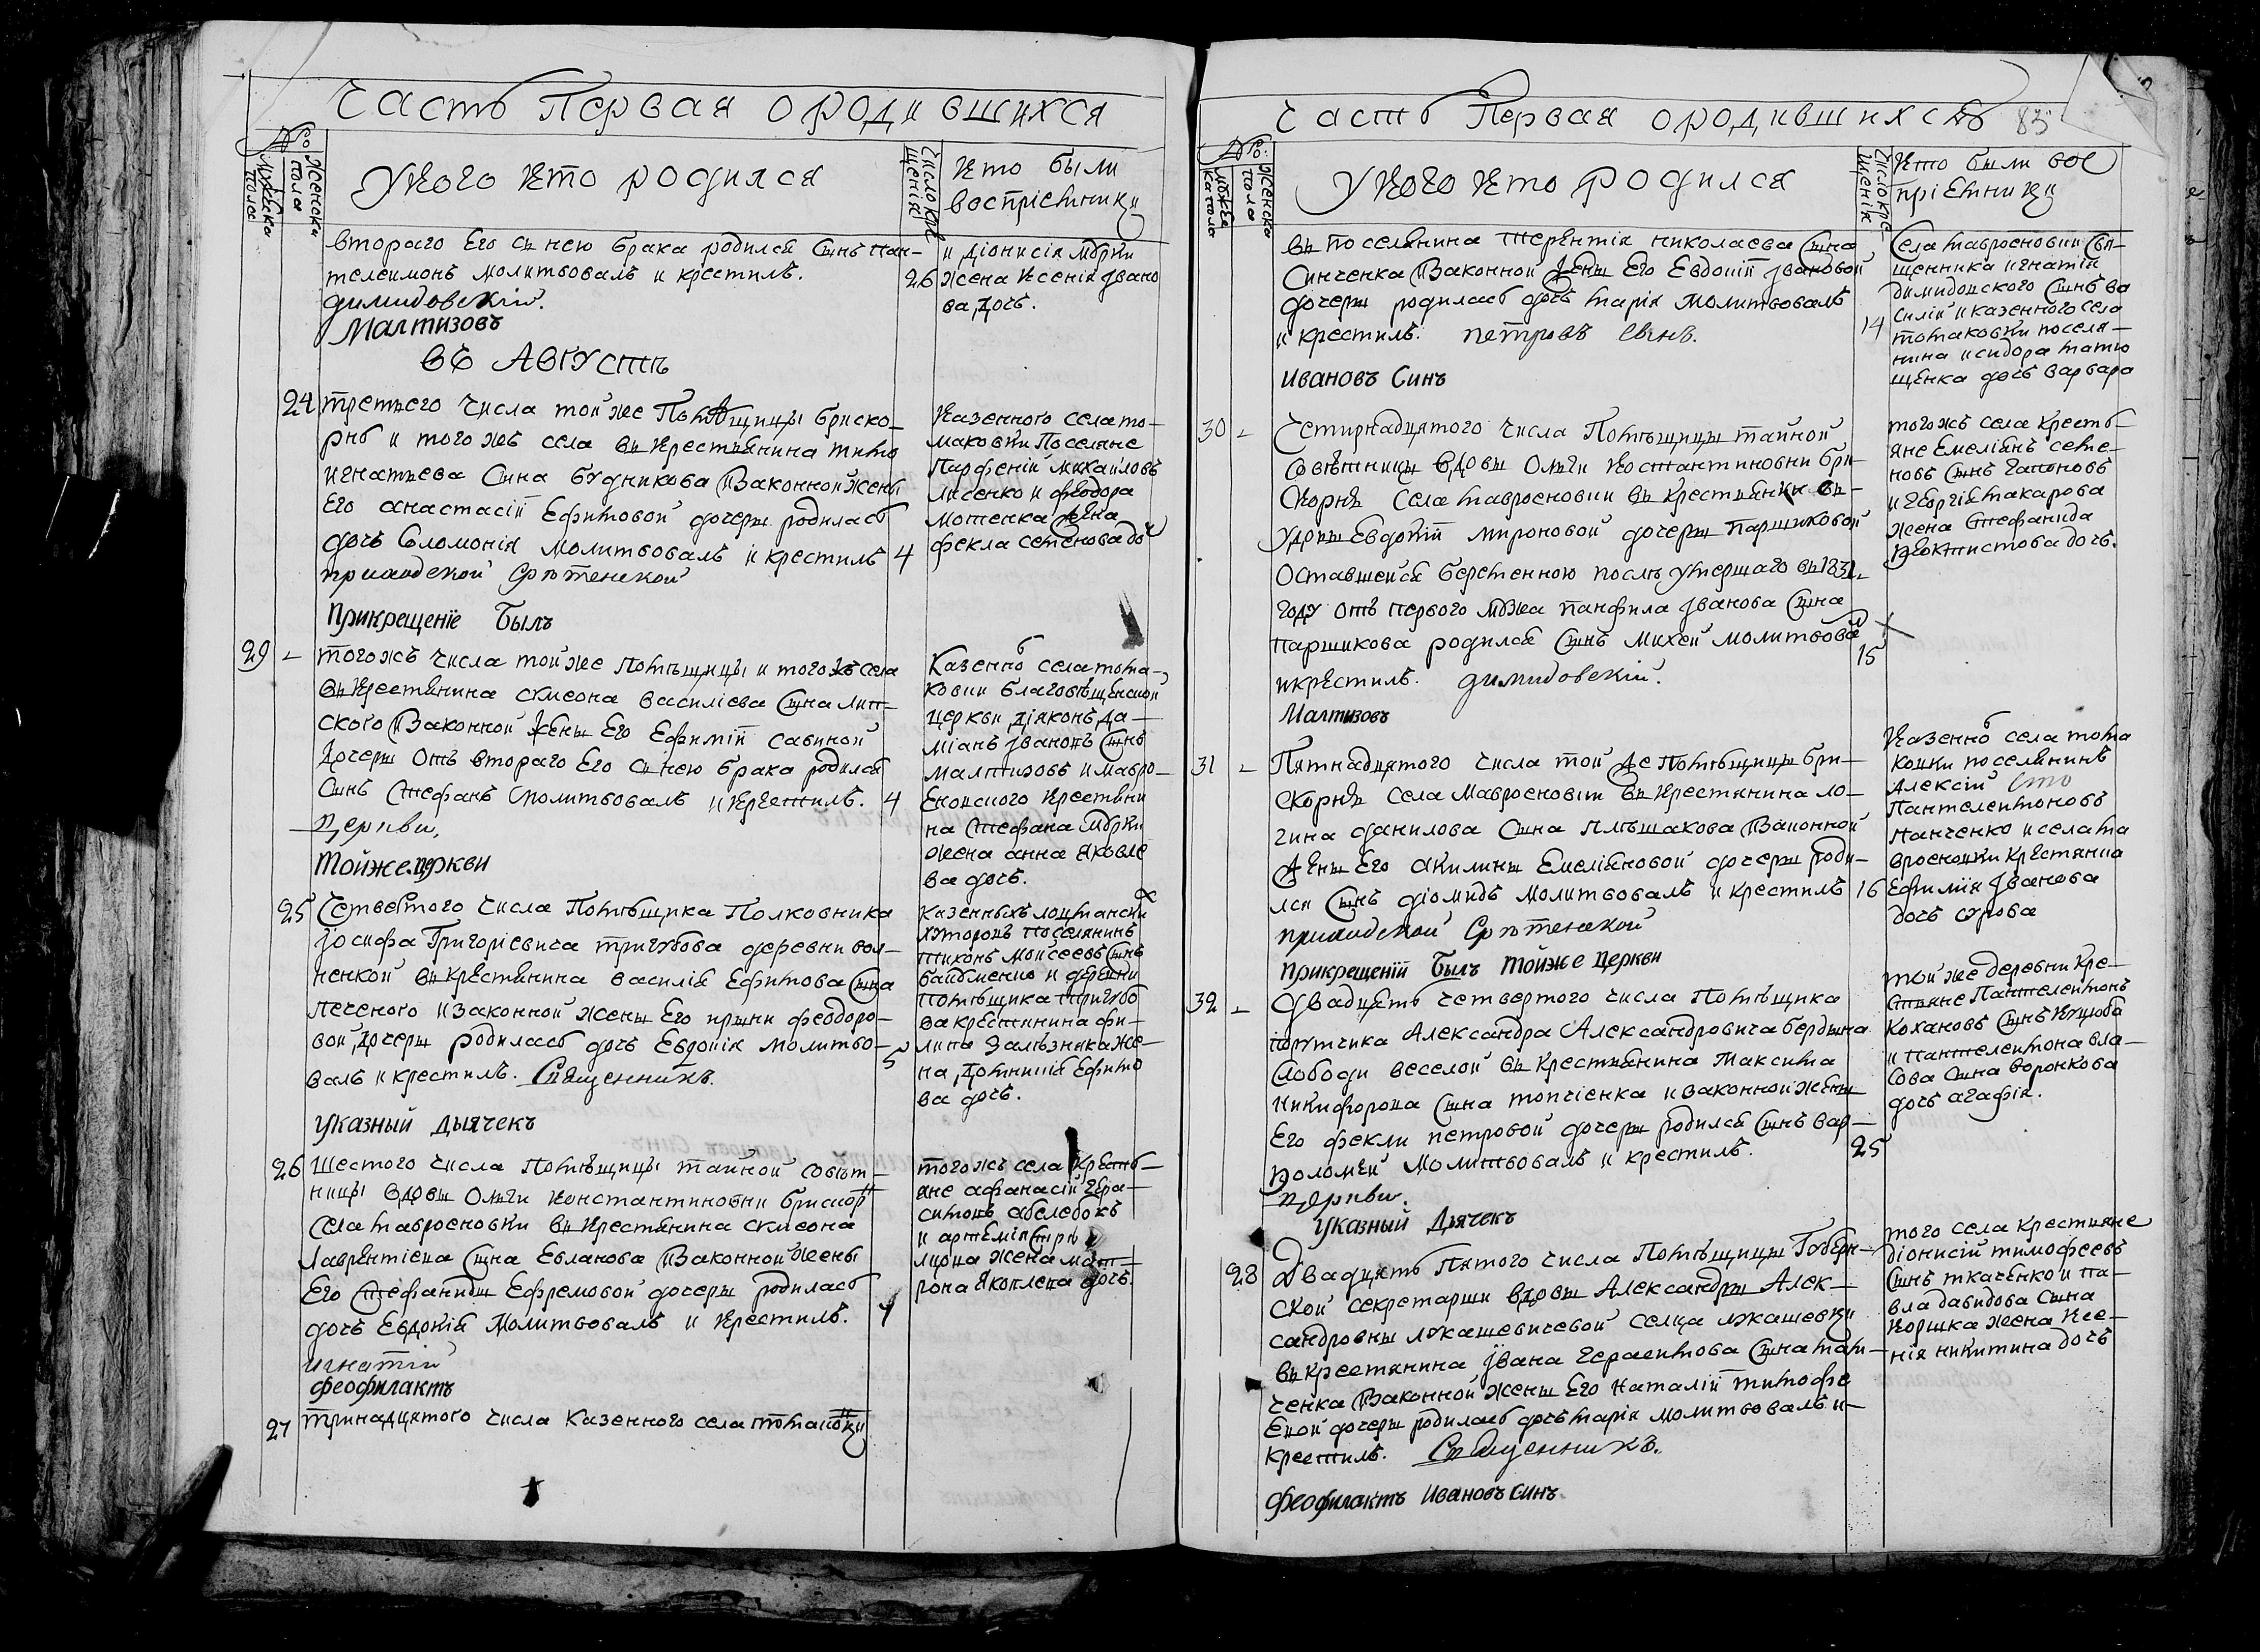 Часть Первая ородившихся
№
Мужеска пола
Женска пола
Укого кто родился
Число крещенія
кто были
воспріемники
втораго Его снею брака родился Сынъ Пан-
телеимонъ молитвовалъ и крестилъ.
димидовскій.
Малтизовъ
26
и Діонисія
жена Ксенія Ивано
ва дочь.
въ Августѣ
24
третьего Числа тойже Помѣщицы Бриско-
рнъ и того жъ села въ Крестьянина
Игнатьева Сына Будникова изаконной жены
Его анастасіи Ефимовой дочеры родилась
дочь Соломонія молитвовалъ и крестилъ
приходской Срѣтенской
Прикрещеніе Былъ
4
Казенного села то-
маковки Поселяне
Парфеній Михайловъ
Лисенко и феодора
мотенка жена
фекла семенова до
29
тогожъ числа тойже помѣщицы и того жъ села
въ Крестянина симеона василіева Сына лип-
ского изаконной жены Его Ефиміи савиной
дочеры Отъ втораго Его снею брака родился
Сынъ Стефанъ молитвовалъ и Крестилъ.
церкви,
Тойже церкви
4
Казенно села тома-
ковки благовѣщенской
церкви діаконъ да-
міанъ Ивановъ Сынъ
малтизовъ и мавро-
Еновского крестяни
на Стефана
жена анна яковле
ва дочь.
25
Четвертого числа Помѣщика Полковника
Іосифа Григоріевича тригубова деревни вол-
ненкой въ Крестянина василія Ефимова Сына
печеного изаконной жены Его ирыни феодоро-
вой дочеры родилась дочь Евдокія молитво-
валъ и крестилъ. Священникъ.
Указный дьячекъ
5
Казенныхъ лоцмански
хуторовъ поселянинъ
тихонъ Моисеевъ Сынъ
и деревни
помѣщика тригубо
ва крестянина фи-
липа Залѣзняка же-
на Домникія Ефимо
ва дочь.
26
Шестого числа Помѣщицы тайной совѣт-
ницы вдовы Ольги Константиновни Брискор
Села мавроеновки въ Крестянина симеона
Лаврентіева Сына Евланова изаконной жены
Его Стефаниды Ефремовой дочеры родилась
дочь Евдокія молитвовалъ и Крестилъ.
игнатій
Феофилактъ
тогожъ села Кресть-
яне афанасій Гера-
симовъ
и артемія
жена мат-
рона Яковлева дочь.
27
тринадцятого числа Казенного села томаковки
Часть Первая ородившихся 83
№
Мужеска пола
Женска пола
Укого кто родился
Число крещенія
Кто были вос
пріемники
въ поселянина терентія николаева Сына
Синченка изаконной жены Его Евдокіи Ивановой
дочеры родилась дочь марія молитвовалъ
и крестилъ. петровъ сынъ.
Ивановъ Синъ
14
Села мавроеновки свя-
щенника игнатія
димидовского Сынъ ва
силій и казенного села
томаковки поселя-
нина исидора
щенка дочь варвара
30
Четирнадцятого числа Помѣщицы тайной
Совѣтницы вдовы Ольги Костантиновни бри-
Скорнъ Села мавроеновки въ крестьянки
Евдокіи мироновой дочеры Паршиковой
Оставшейся беременною послѣ умершаго въ 1831-
году отъ первого мужа панфила Іванова Сына
паршикова родился Сынъ Михей молитвова
икрестилъ. димидовскій.
Малтизовъ
15
тогожъ села кресть-
яне Емеліянъ семе-
новъ Сынъ Гапоновъ
и Георгія макарова
жена Стефанида
феоктистова дочь.
31
Пятнадцятого числа той же помѣщицы бри-
Скорнъ села Мавроеновки въ Крестянина ло-
гина данилова Сына плѣшакова изаконной
жены Его акилины Емеліяновой дочеры роди-
лся Сынъ діомидъ молитвовалъ и крестилъ
приходской Срѣтенской
Прикрещеніи Былъ Тойже Церкви
16
Казенно села тома
ковки поселянинъ
Алексій
Пантелеимоновъ
Панченко и села ма
вроеновки Крестянка
Ефимія Іванова
дочь сурова
32
Двадцять четвертого числа Помѣщика
порутчика Александра Александровича бердяна
слободи веселой въ Крестьянина Максима
никифорова Сына топчіенка изаконной жены
Его фекли петровой дочеры родился Сынъ вар-
фоломей молитвовалъ и крестилъ.
церкви.
Указный Дьячекъ
25
той же деревни Кре-
стьяне Пантелеимонъ
Кохановъ Сынъ
и пантелеимона вла-
сова Сына воронкова
дочь агафія.
28
Двадцять Пятого числа Помѣщицы Губерн-
ской секретарши вдовы Александры Алек-
сандровны лукашевичевой селца лукашевки
въ крестянина Івана Герасимова Сына
ченка изаконной жены Его наталіи тимофе
евой дочеры родилась дочь марія молитвовалъ и
крестилъ. Священникъ.
Феофилактъ Ивановъ синъ
того села крестяне
діонисій тимофеевъ
Сынъ ткаченко и па-
вла давидова Сына
Коршка жена Ксе-
нія никитина дочь